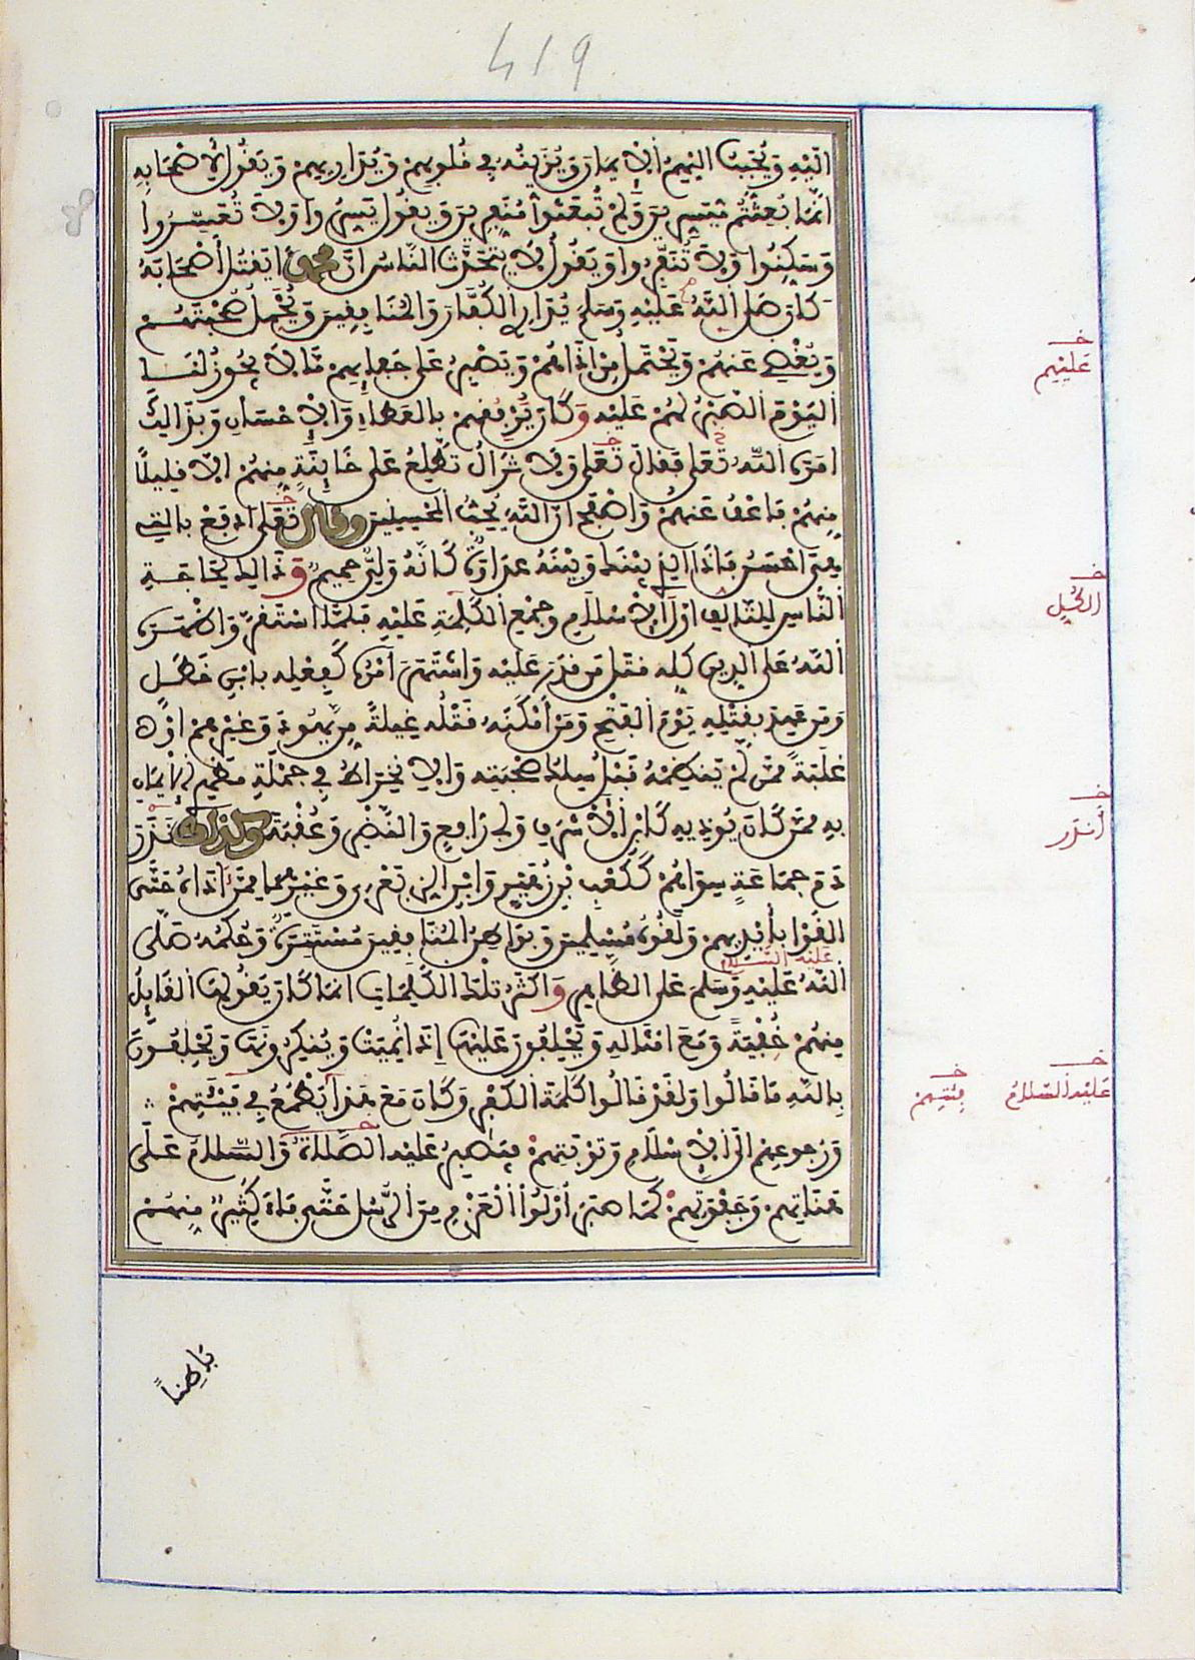 419
إليه ويحبب إليهم الإيمان ويزينه في قلوبهم ويداريهم ويقول لأصحابه
إنما بعثتم ميسرين ولم تبعثوا منفرين ويقول يسروا ولا تعسروا
وسكنوا ولا تنفروا ويقول لا يتحدث الناس أن محمدا يقتل أصحابه
كان صلى الله عليه وسلم يداري الكفار والمنافقين ويجمل صحبتهم
ويغضي عنهم ويحتمل من أذاهم ويصبر على جفائهم ما لا يجوز لنا
اليوم الصبر لهم عليه وكان يرفقهم بالعطاء والإحسان وبذالك
أمره الله تعلى فقال تعلى ولا تزال تطلع على خائنة منهم إلا قليلا
منهم فاعف عنهم واصفح إن الله يحب المحسنين وقال تعلى ادفع بالتي
هي أحسن فإذا الذي بينك وبينه عداوة كأنه ولي حميم وذالك لحاجة
الناس للتألف أول الإسلام وجمع الكلمة عليه فلما استقر وأظهره
الله على الدين كله قتل من قدر عليه واشتهر أمره كفعله بابن خطل
ومن عهد بقتله يوم الفتح ومن أمكنه قتله غيلة من يهود وغيرهم أو
غلبة ممن لم ينظمه قبل سلك صحبته والانخراط في جملة مظهري الإيمان
به ممن كان يوذيه كابن الأشرف وأبي رافع والنضر وعقبة وكذلك نذر
دم جماعة سواهم ككعب بن زهير وابن الزبعرى وغيرهما ممن آذاه حتى
ألقوا بأيديهم ولقوه مسلمين وبواطن المنافقين مستترة وحكمه صلى
عليه السلام
الله عليه وسلم على الظاهر وأكثر تلك الكلمات إنما كان يقولها القائل
منهم خفية ومع أمثاله ويحلفون عليها إذا نميت وينكرونها ويحلفون
بالله ما قالوا ولقد قالوا كلمة الكفر وكان مع هذا يطمع في فيئتهم
ورجوعهم إلى الإسلام وتوبتهم فيصبر عليه الصلاة والسلام على
هناتهم وجفوتهم كما صبر أولوا العزم من الرسل حتى فاء كثير منهم
خ
عليهم
خ
الكل
خ
أنذر
خ
عليه السلام
خ
فئتهم
باطنا